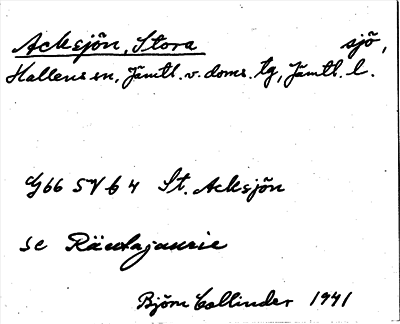 Acksjön, Stora sjö,
Hallens sn, Jämtl. v. doms. tg, Jämtl. l.
G66 SV b 4 St. Acksjön
se Räutajaurie
Björn Collinder 1941